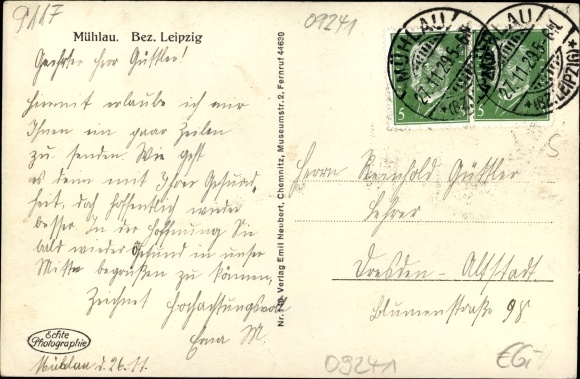 9117
09241
Mühlau. Bez. Leipzig
Geehrter Herr Güttler!
Hiermit erlaube ich mir
Ihnen ein paar Zeilen
zu senden. Wie geht
es denn mit Ihrer Gesund-
heit, doch hoffentlich wieder
besser. In der Hoffnung Sie
bald wieder gesund in unser
Mitte begrüßen zu können,
Zeichnet Hochachtungsvoll
Erna M.
Mühlau d. 26.11.
Echte
Photographie
Nr. Verlag Emil Neubert, Chemnitz, Museumstr. 2, Fernruf 44630
MÜHLAU
27.11.29.
(BZ. LEIPZIG)
5
5
Herrn Reinhold Güttler
Lehrer
Dresden-Altstadt.
Blumenstraße 98
09241